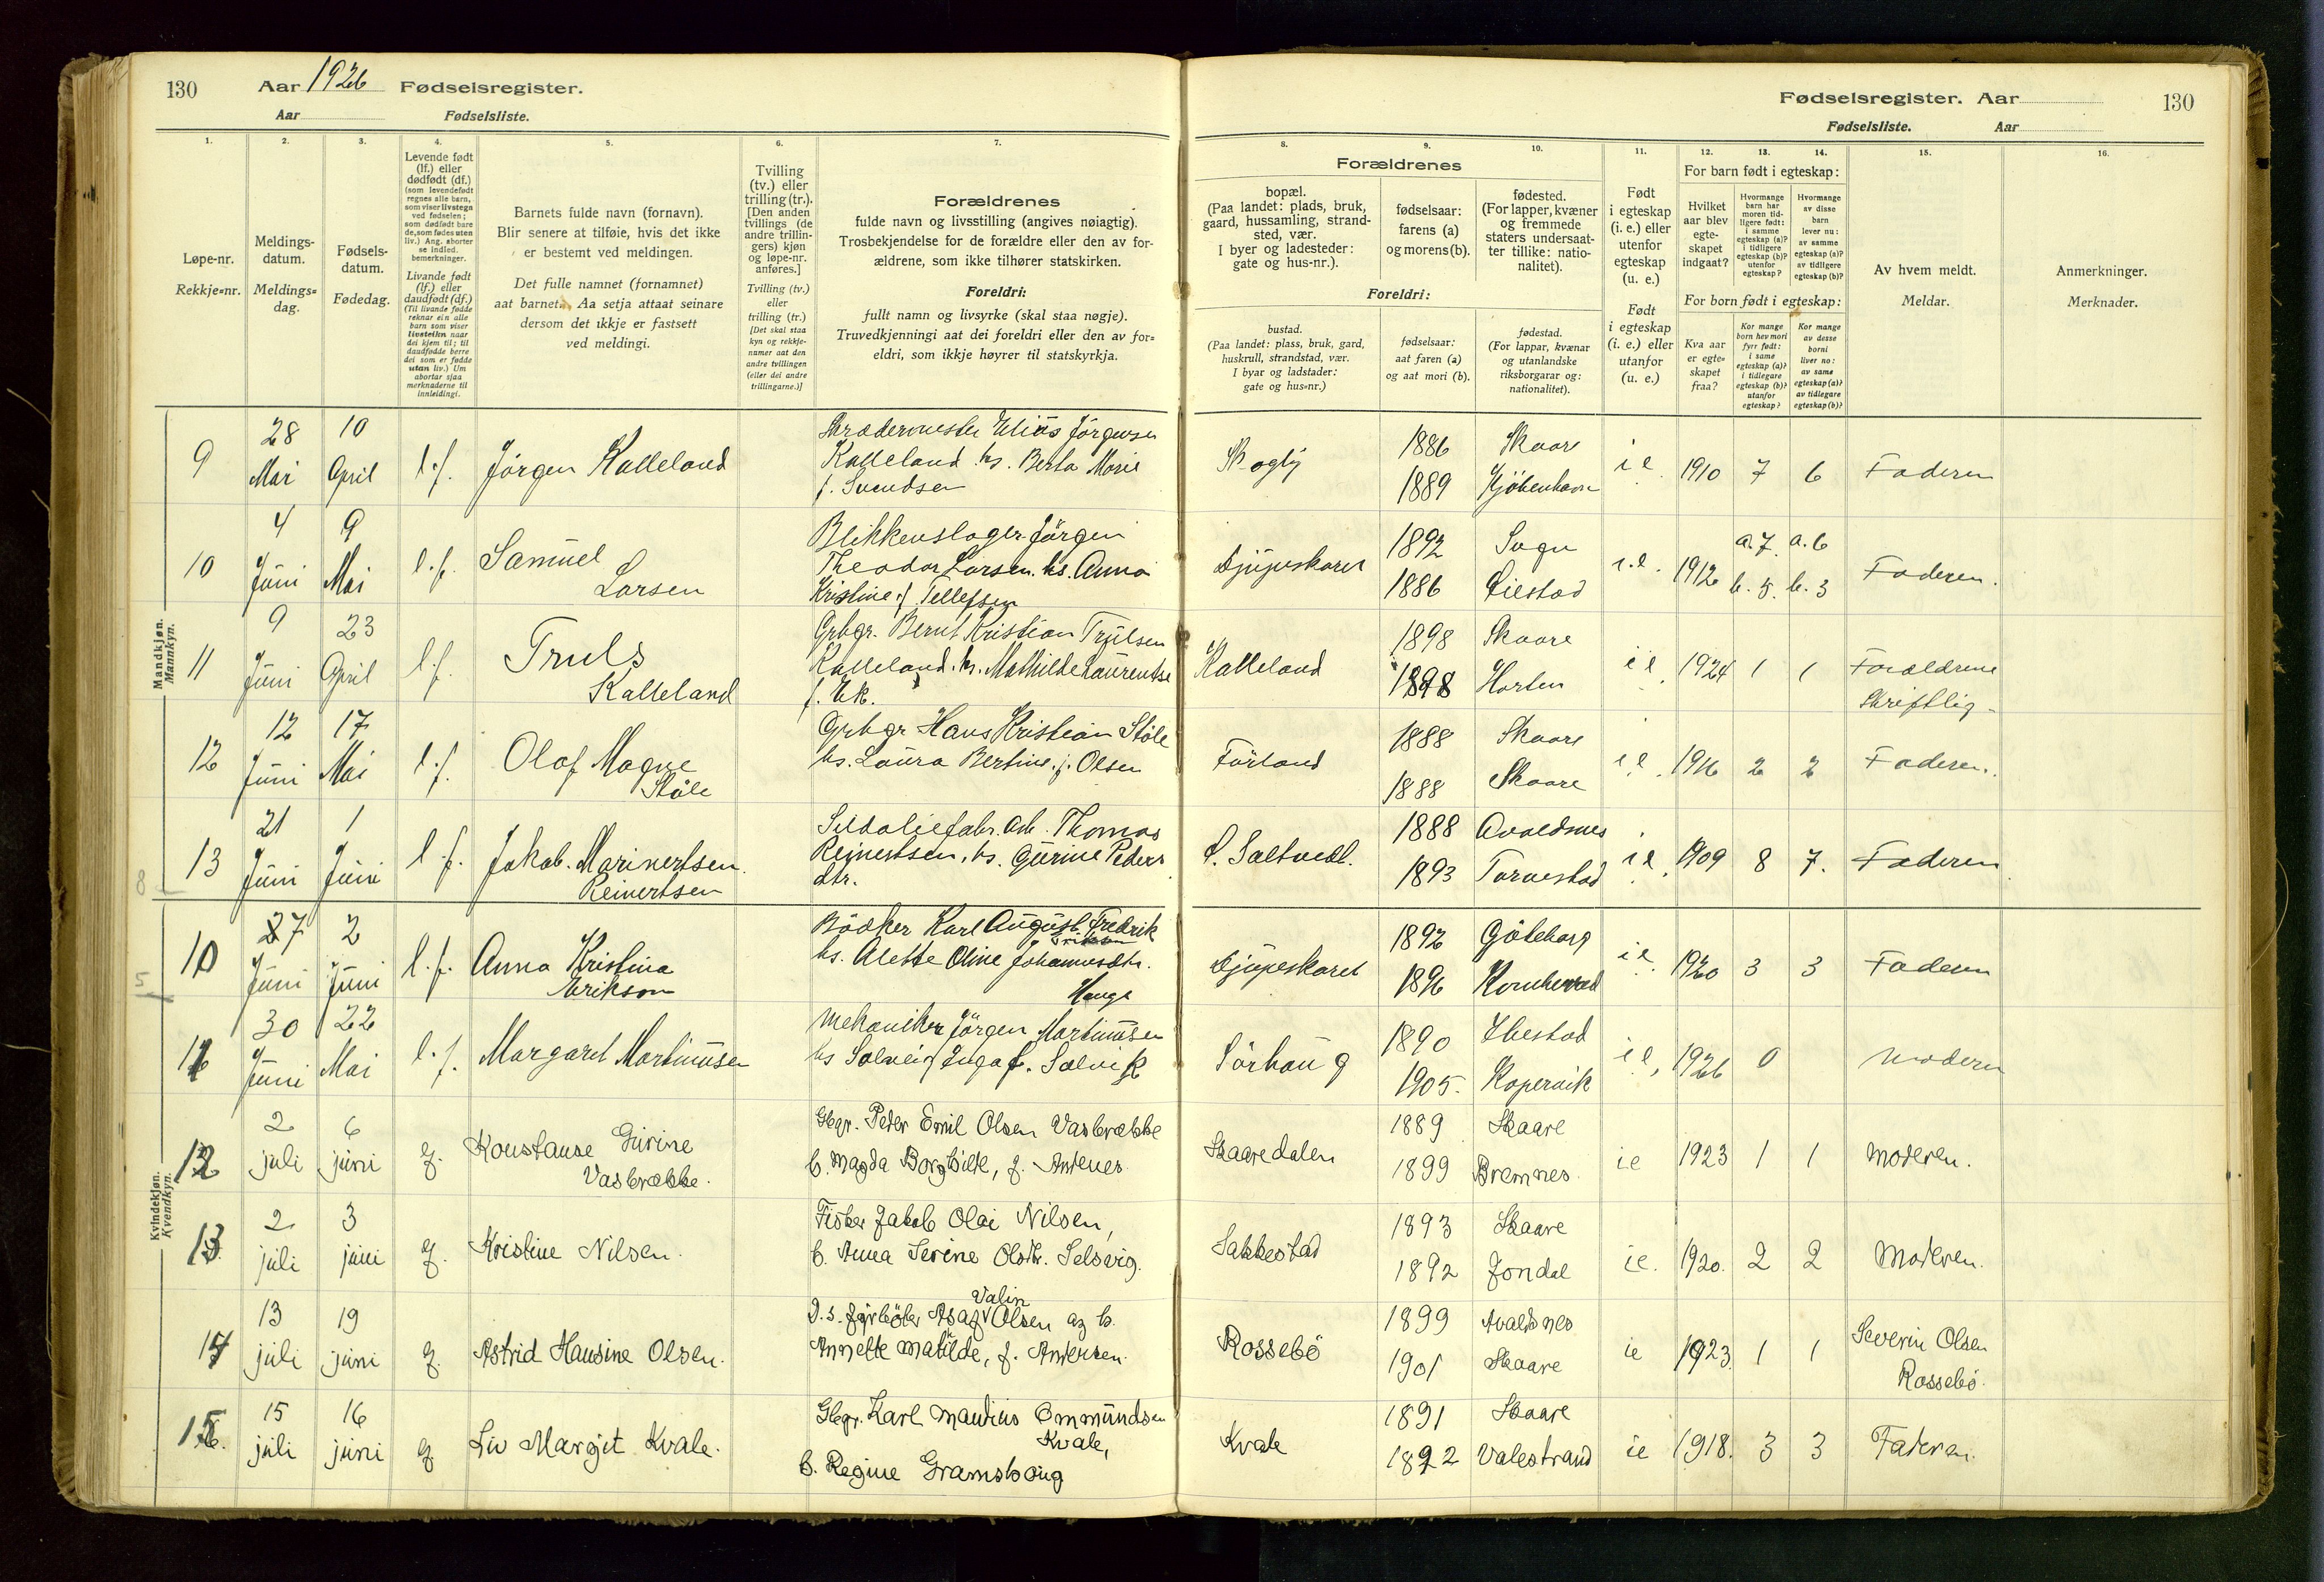 130 Aar 1926 Fødselsregister.
Aar Fødselsliste.
Fødselsregister. Aar 130
Fødselsliste. Aar
1. 2. 3. 4. 5. 6. 7. 8. 9. 10. 11. 12. 13. 14. 15. 16.
Løpe-nr.
Rekkje=nr.
Meldings-
datum.
Meldings=
dag.
Fødsels-
datum.
Fødedag.
Levende født
(lf.) eller
dødfødt (df.)
(som levendefødt
regnes alle barn,
som viser livstegn
ved fødselen;
som dødfødt bare
de, som fødes uten
liv.) Ang. aborter
se indled.
bemerkninger.
Livande født
(lf.) eller
daudfødt (df.)
(Til livande fødde
reknar ein alle
barn som viser
livsteikn naar
dei kjem til; til
daudfødde berre
dei som er fødde
utan liv.) Um
abortar sjaa
merknaderne til
innleidingi.
Barnets fulde navn (fornavn).
Blir senere at tilføie, hvis det ikke
er bestemt ved meldingen.
Det fulle namnet (fornamnet)
aat barnet. Aa setja attaat seinare
dersom det ikkje er fastsett
ved meldingi.
Tvilling
(tv.) eller
trilling (tr.).
[Den anden
tvillings (de
andre trillin-
gers) kjøn
og løpe-nr.
anføres.]
Tvilling (tv.)
eller
trilling (tr.)
[Det skal staa
kyn og rekkje-
numer aat den
andre tvillingen
(eller dei andre
trillingarne.)]
Forældrenes
fulde navn og livsstilling (angives nøiagtig).
Trosbekjendelse for de forældre eller den av for-
ældrene, som ikke tilhører statskirken.
Foreldri:
fullt namn og livsyrke (skal staa nøgje).
Truvedkjenningi aat dei foreldri eller den av for=
eldri, som ikkje høyrer til statskyrkja.
Forældrenes
bopæl.
(Paa landet: plads, bruk,
gaard, hussamling, strand-
sted, vær.
I byer og ladesteder:
gate og hus-nr.).
fødselsaar:
farens (a)
og morens (b).
fødested.
(For lapper, kvæner
og fremmede
staters undersaat-
ter tillike: natio-
nalitet).
Foreldri:
bustad.
(Paa landet: plass, bruk, gard,
huskrull, strandstad, vær.
I byar og ladstader:
gate og hus=nr.)
fødselsaar:
aat faren (a)
og aat mori (b).
fødestad.
(For lappar, kvænar
og utanlandske
riksborgarar og:
nationalitet).
Født
i egteskap
(i. e.) eller
utenfor
egteskap
(u. e.)
Født
i egteskap
(i. e.) eller
utanfor
(u. e.)
For barn født i egteskap:
Hvilket
aar blev
egte-
skapet
indgaat?
Hvormange
barn har
moren tid-
ligere født:
i samme
egteskap (a)?
i tidligere
egteskap (b)?
utenfor
egteskap?
Hvormange
av disse
barn
lever nu:
av samme
egteskap (a)?
av tidligere
egteskap (b)?
For born født i egteskap:
Kva aar
er egte=
skapet
fraa?
Kor mange
born hev mori
fyrr født:
i same
egteskap (a)?
i tidlegare
egteskap (b)?
utanfor
egteskap?
Kor mange
av desse
borni
liver no:
av same
egteskap (a)?
av tidlegare
egteskap (b)?
Av hvem meldt.
Meldar.
Anmerkninger.
Merknader.
Mandkjøn.
Mannkyn.
9 28 Mai 10 April l.f. Jörgen Kalleland
Skrædermester Elias Jörgensen
Kalleland. hs. Berta Marie
f. Svendsen
Skogly 1886 Skaare 1889 Kjöbenhavn i e 1910 7 6 Faderen
10 4 Juni 9 Mai l.f. Samuel
Larsen
Blikkenslager Jörgen
Theodor Larsen. hs. Anna
Kristine f. Tellefsen
Djupeskaret 1892 Sogn 1886 i.e. 1912 a. 7. a. 6 b. 5. b. 3 Faderen.
11 9 Juni 23 April l.f. Truls
Kalleland
Grbgr. Bernt Kristian Trulsen
Kalleland. hs. Mathilde Laurentse
f. Ek.
Kalleland 1898 Skaare 1898 Horten i e 1924 1 1 Forældrene
Skriftlig
12 12 Juni 17 Mai l.f. Olaf Magne
Ståle
Grbgr Hans Kristian Ståle
hs. Laura Bertine. f. Olsen
Förland 1888 Skaare 1888 Skaare i e. 1916 2 2 Faderen.
13 21 Juni 1 Juni l.f. Jakob. Marinertsen.
Reinertsen
Sildoliefabr. Arb. Thomas
Reinertsen, hs. Gurine Peders
dtr.
S. Saltvedt. 1888 Avaldsnes 1893 Torvestad i e. 1909 8 7. Faderen
8
Kvindekjøn.
Kvendkyn.
10 27 Juni 2 Juni l.f. Anna Kristina
Erikson
Bödker Karl August Fredrik
Erikson
hs. Alette Oline Johannesdtr.
Hauge
Djupeskaret 1892 Göteborg 1896 i e. 1920 3 3 Faderen
5
11 30 Juni 22 Mai l.f. Margaret Martinusen
Mekaniker Jörgen Martinusen
hs Solveig Inga f. Solvik
Sörhaug 1890 Ibestad 1905. Kopervik i e, 1926 0 Moderen
12 2 juli 6 juni lf. Konstanse Gurine
Vasbrække.
Gbgr. Peder Emil Olsen Vasbrække
h. Magda Borghilde, f. Andenes.
Skaaredalen 1889 Skaare 1899 Bremnes. ie 1923 1 1 Moderen.
13. 2 juli 3 juni lf. Kristine Nilsen.
Fisker Jakob Olai Nilsen,
h. Anna Serine Olsdtr. Selsvig.
Sakkestad 1893 Skaare 1892 Jondal ie. 1920. 2 2 Moderen.
14 13 juli 19 juni lf. Astrid Hansine Olsen.
Valin
D.s. fyrböter Asaf Olsen og h.
Annette Matilde, f. Andersen.
Rossebö 1899 Avaldsnes 1901 Skaare ie 1923. 1 1 Severin Olsen
Rossebö.
15. 15 juli 16 juni lf Liv Margit Kvale.
Gbgr. Karl Mandius Ommundsen
Kvale,
h. Regine Gramshaug
Kvale 1891 Skaare 1892 Valestrand ie 1918. 3 3 Faderen.